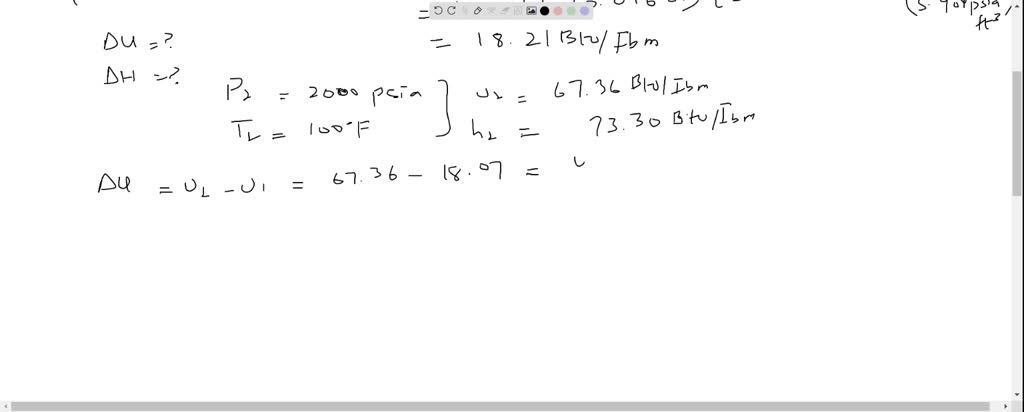 =
(5.404 psia
ft³)
ΔU = ?
= 18.21 Btu/Ibm
ΔH = ?
P2 = 2000 psia
u2 = 67.36 Btu/Ibm
T2 = 100°F
h2 = 73.30 Btu/Ibm
ΔU = U2 - U1 = 67.36 - 18.07 =